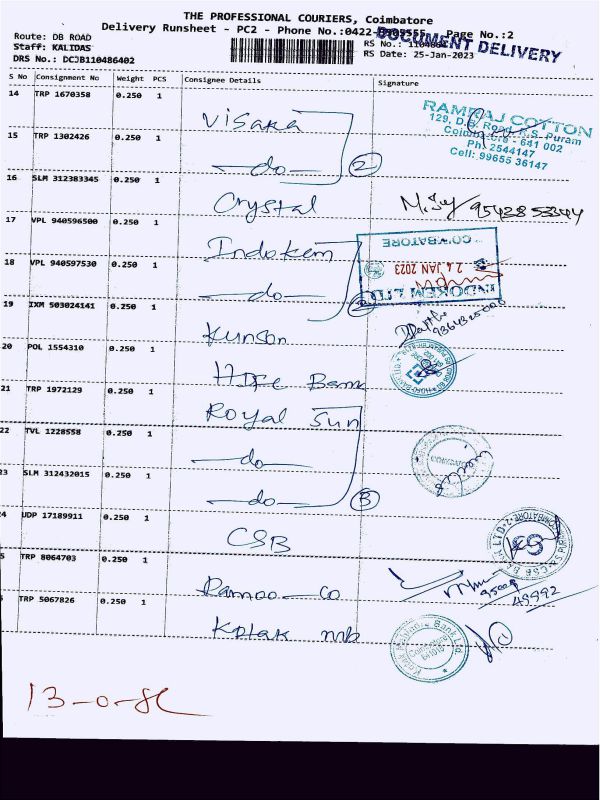 THE PROFESSIONAL COURIERS, Coimbatore
Delivery Runsheet - PC2 - Phone No.:0422- Page No.:2
DOCUMENT DELIVERY
Route: DB ROAD
Staff: KALIDAS
DRS No.: DCJB110486402
RS No.:
RS Date: 25-Jan-2023
S No Consignment No Weight PCS Consignee Details Signature
14 TRP 1670358 0.250 1
Visaka
RAMRAJ COTTON
129, D.B. Road, R.S. Puram
Coimbatore - 641 002
Ph: 2544147
Cell: 99655 36147
15 TRP 1302426 0.250 1
—do— 2
16 SLM 312383345 0.250 1
Crystal
17 VPL 940596500 0.250 1
Indokem
COIMBATORE
24 JAN 2023
INDOKEM LTD.
18 VPL 940597530 0.250 1
—do—
19 IXM 503024141 0.250 1
Kunson
20 POL 1554310 0.250 1
HDFC Bank
21 TRP 1972129 0.250 1
Royal Sun
22 TVL 1228558 0.250 1
—do—
23 SLM 312432015 0.250 1
—do— 3
24 UDP 17189911 0.250 1
CSB
5 TRP 8064703 0.250 1
Ramoo—co
TRP 5067826 0.250 1
Kotak mb
Kotak Mahindra Bank Ltd.